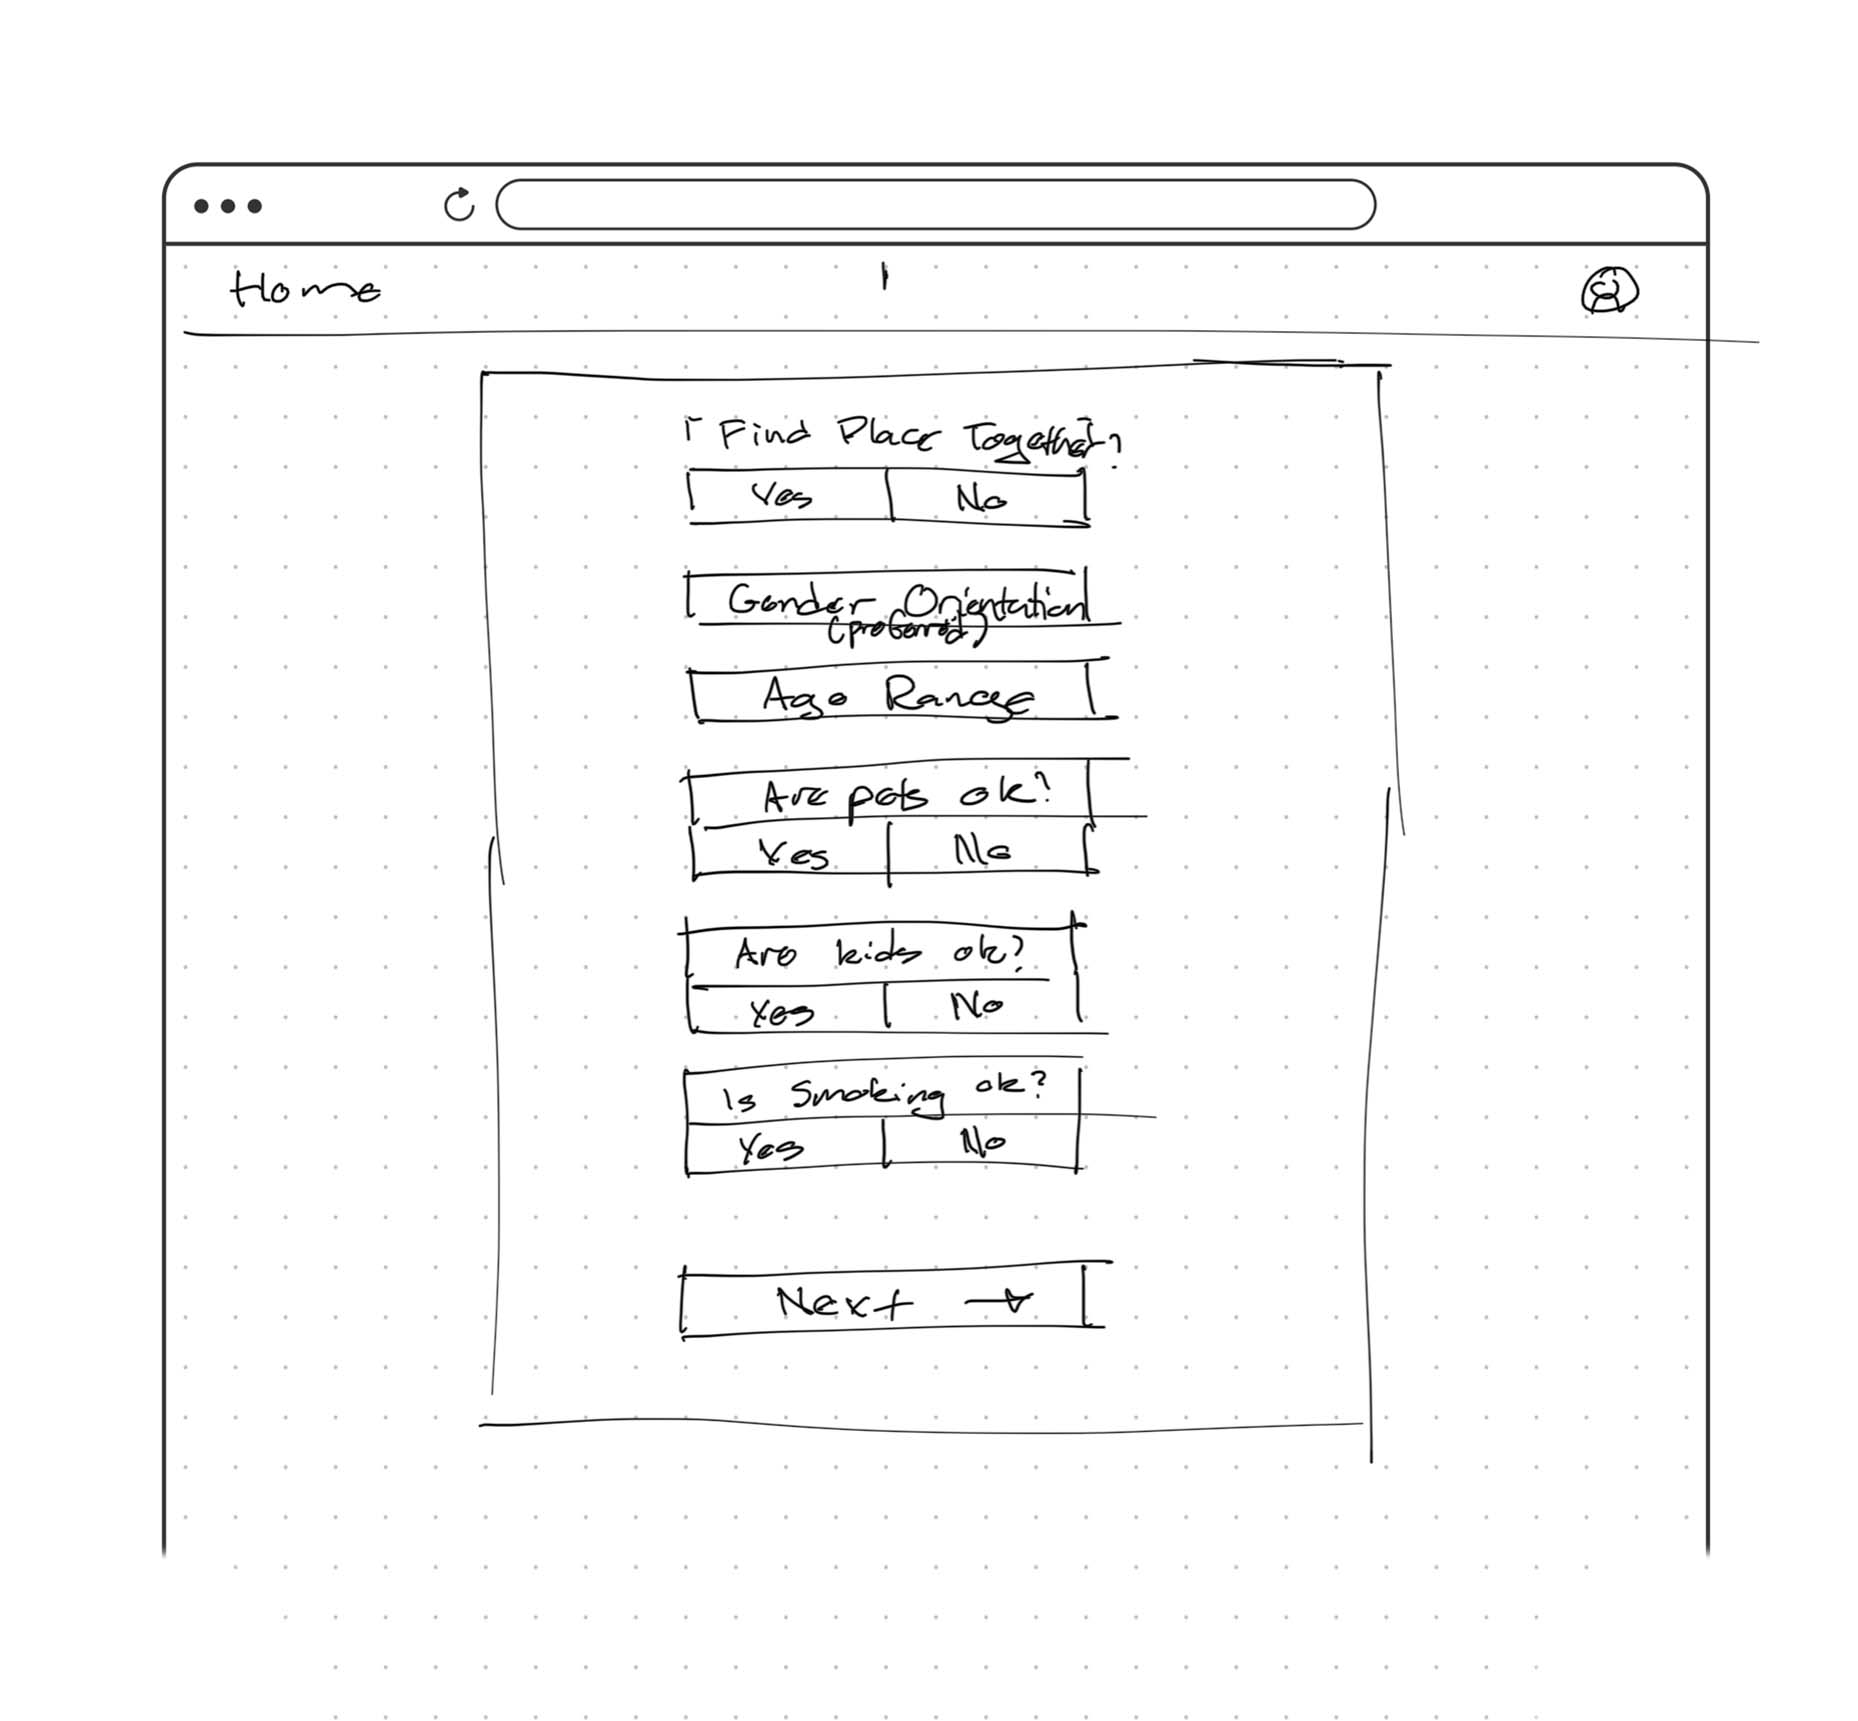 Home
Find Place Together?
Yes No
Gender Orientation
(preferred)
Age Range
Are pets ok?
Yes No
Are kids ok?
Yes No
Is Smoking ok?
Yes No
Next →